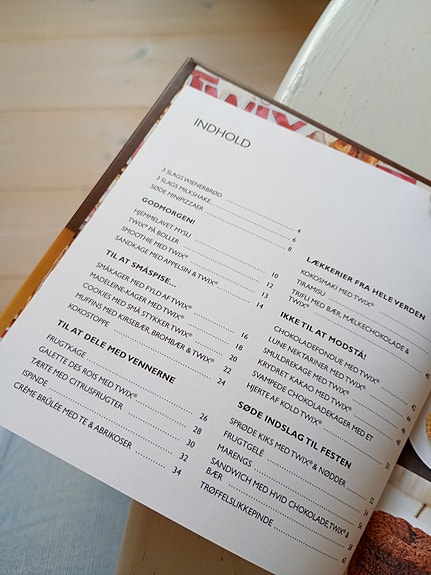 TWIX
INDHOLD
3 SLAGS WIENERBRØD 4
3 SLAGS MILKSHAKE 6
SØDE MINIPIZZAER 8
GODMORGEN!
HJEMMELAVET MYSLI 10
TWIX® PÅ BOLLER 12
SMOOTHIE MED TWIX® 13
SANDKAGE MED APPELSIN & TWIX® 14
TIL AT SMÅSPISE...
SMÅKAGER MED FYLD AF TWIX® 16
MADELEINE-KAGER MED TWIX® 18
COOKIES MED SMÅ STYKKER TWIX® 20
MUFFINS MED KIRSEBÆR, BROMBÆR & TWIX® 22
KOKOSTOPPE 24
TIL AT DELE MED VENNERNE
FRUGTKAGE 26
GALETTE DES ROIS MED TWIX® 28
TÆRTE MED CITRUSFRUGTER 30
ISPINDE 32
CRÈME BRÛLÉE MED TE & ABRIKOSER 34
LÆKKERIER FRA HELE VERDEN
KOKOSMAKI MED TWIX®
TIRAMISU
TRIFLI MED BÆR, MÆLKECHOKOLADE &
TWIX®
IKKE TIL AT MODSTÅ!
CHOKOLADEFONDUE MED TWIX®
LUNE NEKTARINER MED TWIX®
SMULDREKAGE MED TWIX®
KRYDRET KAKAO MED TWIX®
SVAMPEDE CHOKOLADEKAGER MED ET
HJERTE AF KOLD TWIX®
SØDE INDSLAG TIL FESTEN
SPRØDE KIKS MED TWIX® & NØDDER
FRUGTGELÉ
MARENGS
SANDWICH MED HVID CHOKOLADE, TWIX® &
BÆR
TRØFFELSLIKKEPINDE